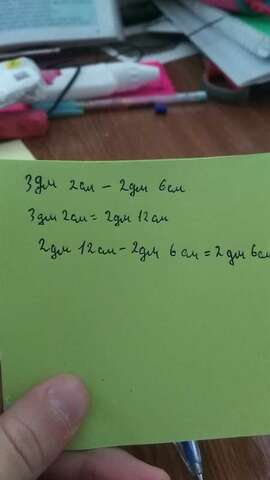 3дм 2см - 2дм 6см
3дм 2см = 2дм 12см
2дм 12см - 2дм 6см = 2дм 6см